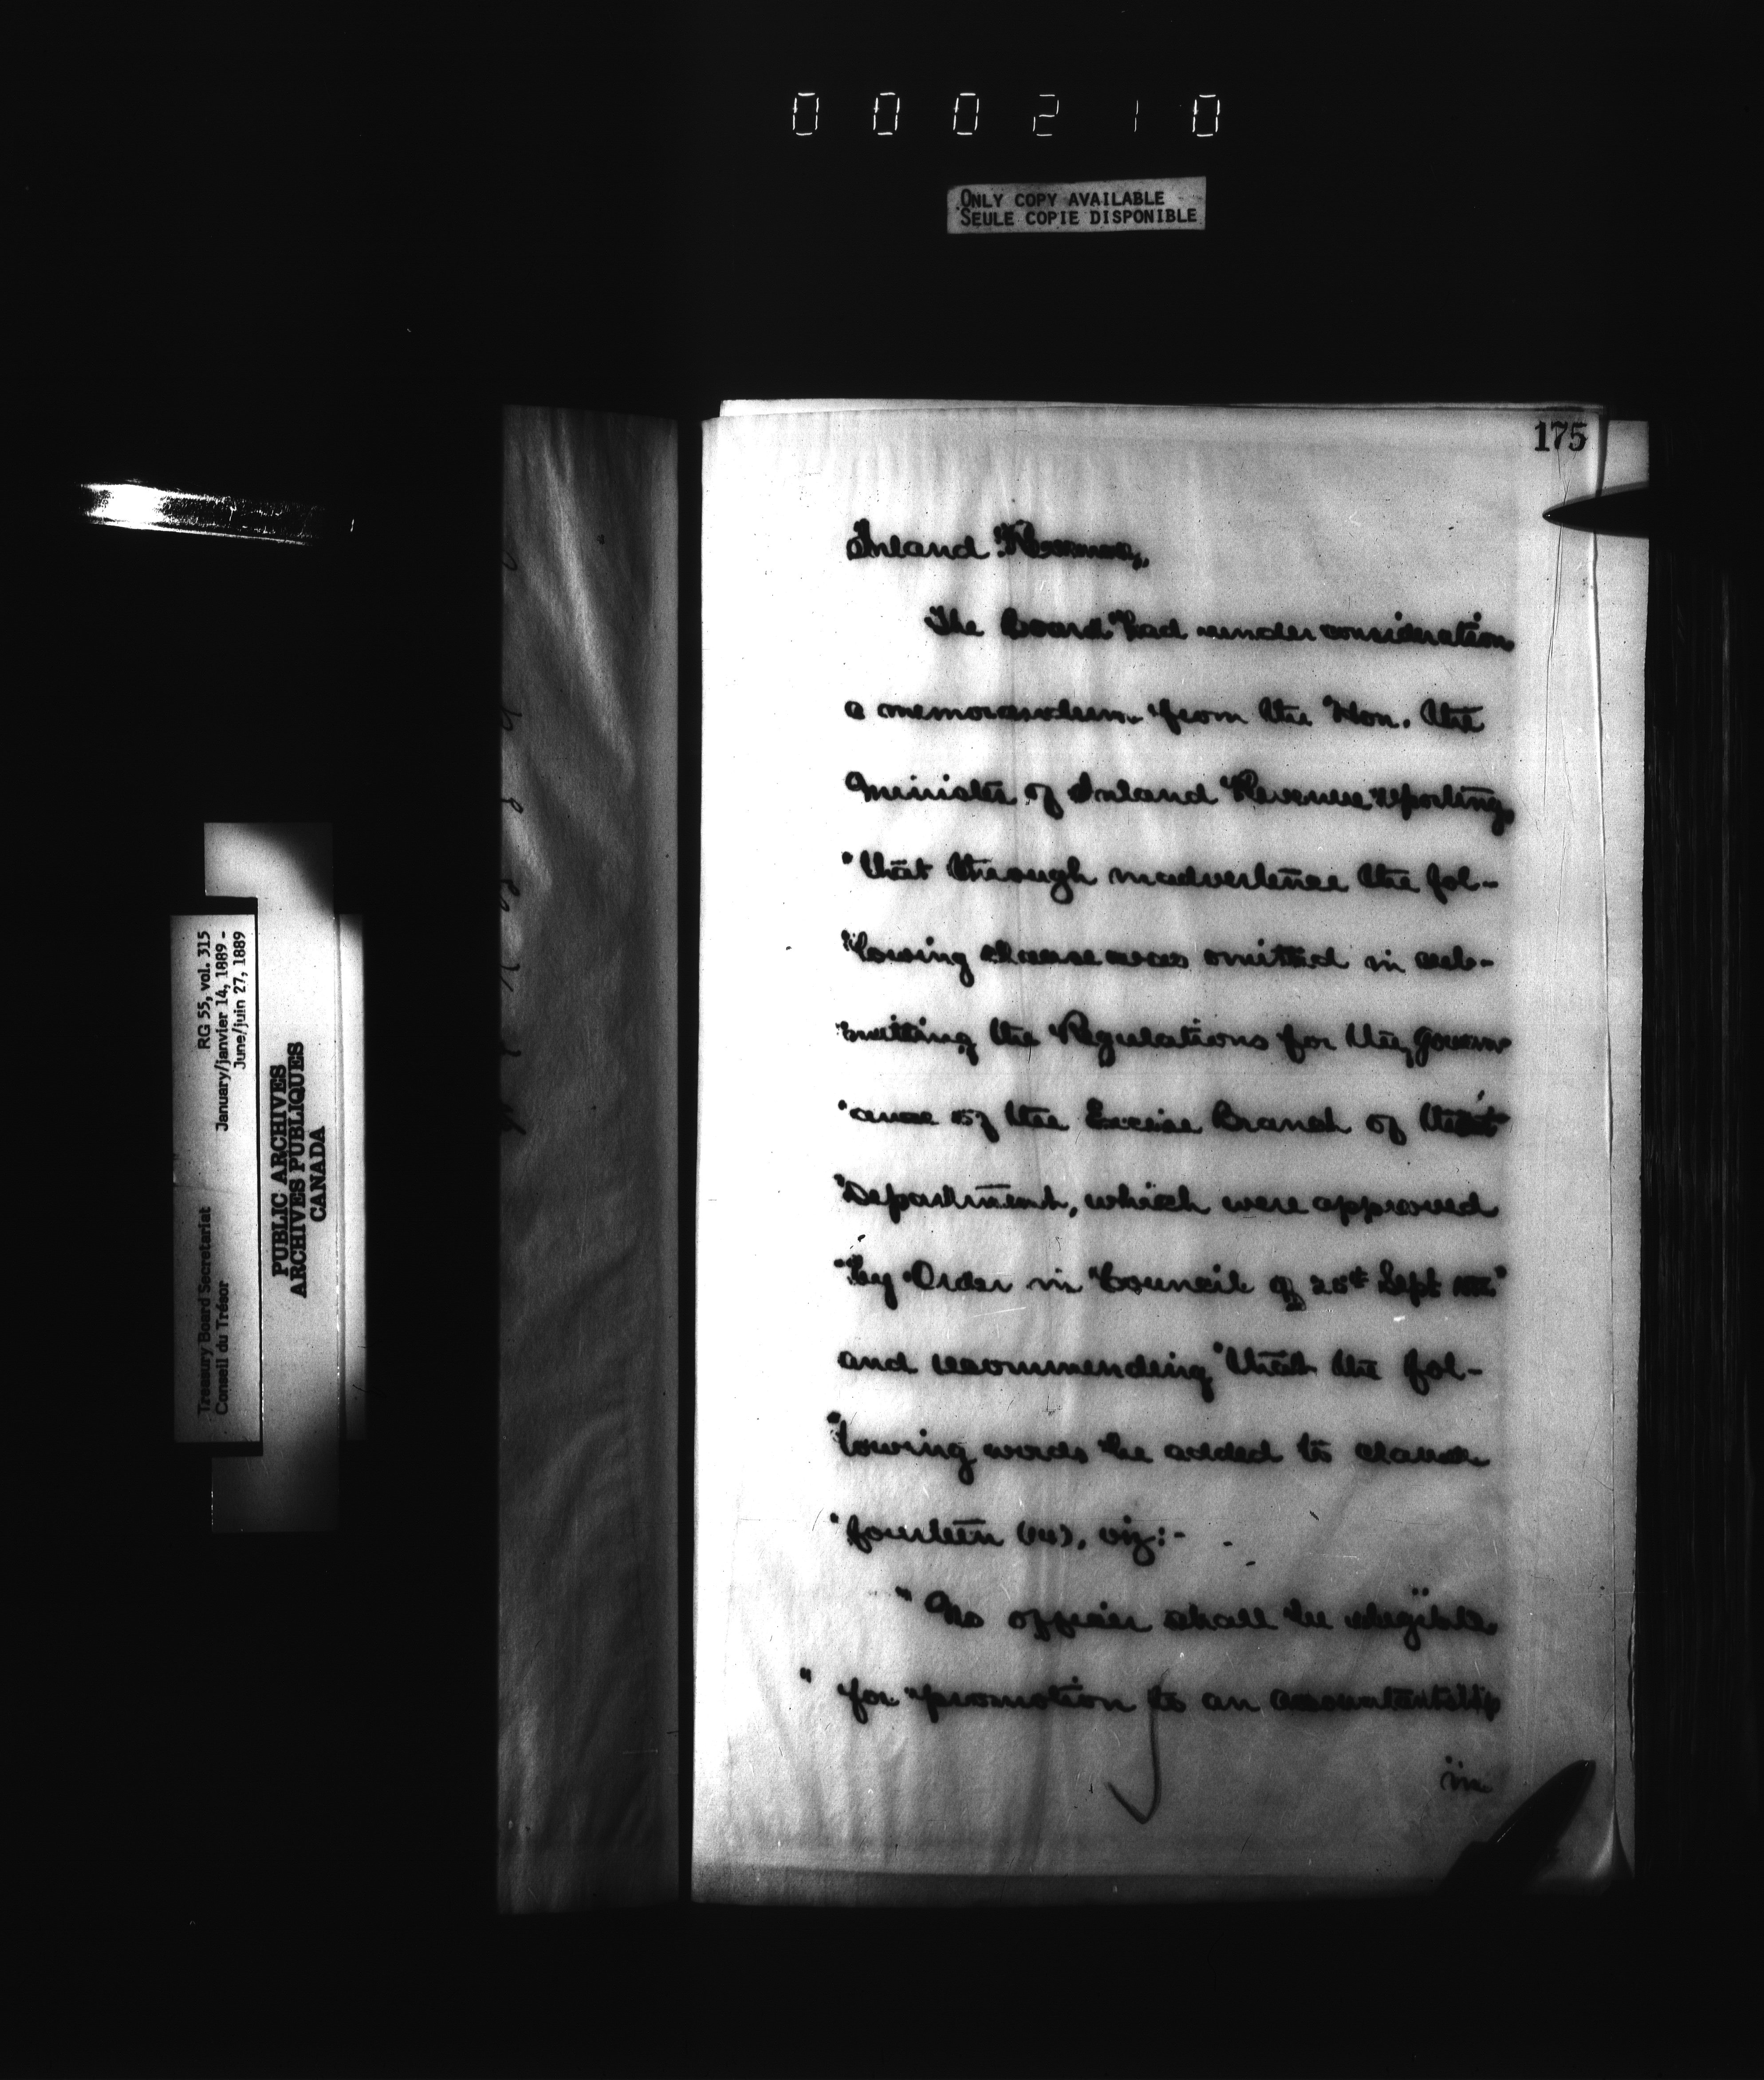 000210
ONLY COPY AVAILABLE
SEULE COPIE DISPONIBLE
175
Inland Revenue,
The Board had under consideration
a memorandum from the Hon. the
Minister of Inland Revenue reporting,
"that through inadvertence the fol-
"lowing clause was omitted in sub-
"mitting the Regulations for the govern
"ance of the Excise Branch of that
"Department, which were approved
"by Order in Council of Sept
and recommending "that the fol-
"lowing words be added to clause
"fourteen (14), viz:-
"No officer shall be eligible
" for promotion to an accountantship
in
RG 55, vol. 315
January/janvier 14, 1889 -
June/juin 27, 1889
Treasury Board Secretariat
Conseil du Trésor
PUBLIC ARCHIVES
ARCHIVES PUBLIQUES
CANADA